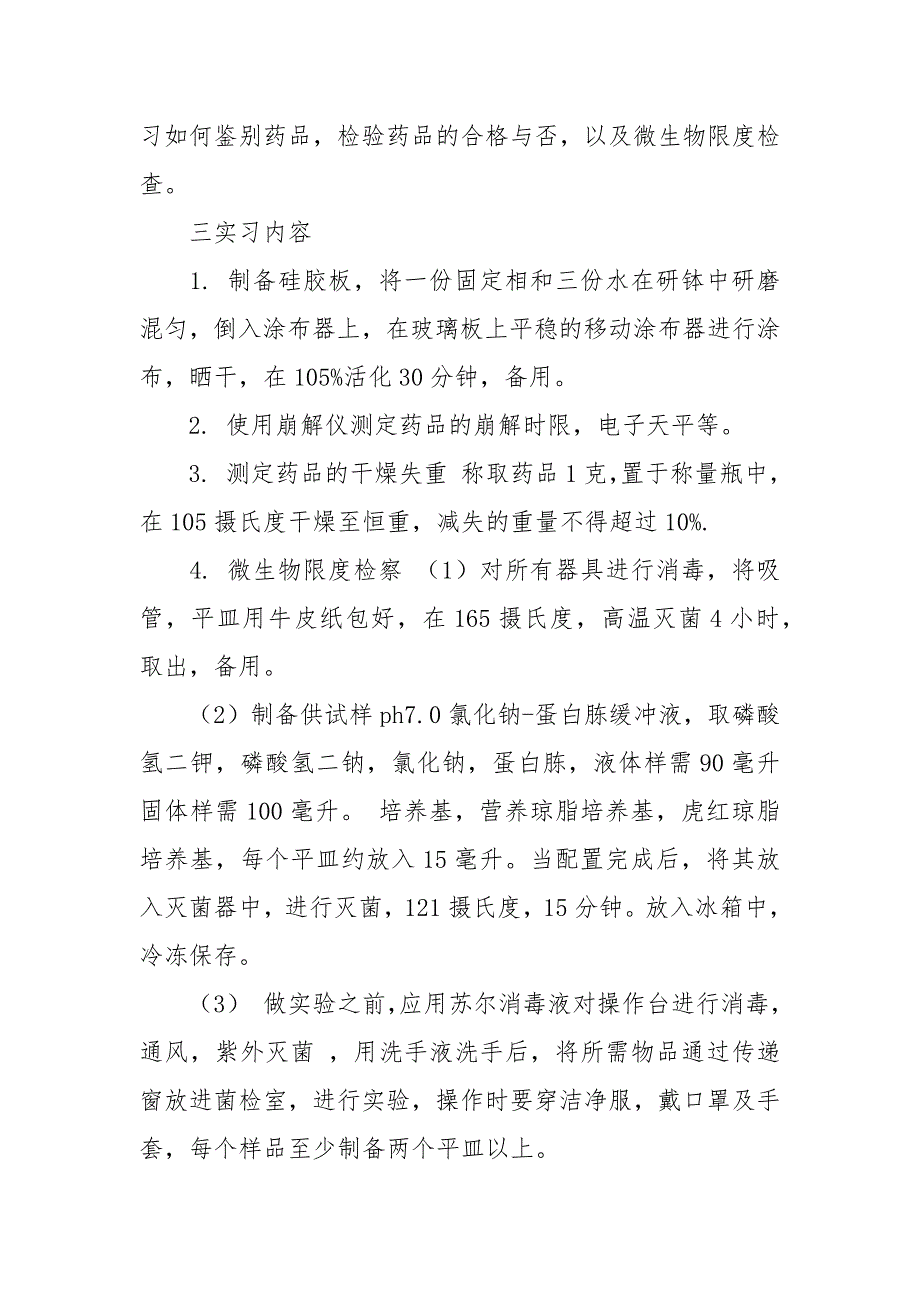 习如何鉴别药品，检验药品的合格与否，以及微生物限度检
查。
三实习内容
1. 制备硅胶板，将一份固定相和三份水在研钵中研磨
混匀，倒入涂布器上，在玻璃板上平稳的移动涂布器进行涂
布，晒干，在 105%活化 30 分钟，备用。
2. 使用崩解仪测定药品的崩解时限，电子天平等。
3. 测定药品的干燥失重 称取药品 1 克，置于称量瓶中，
在 105 摄氏度干燥至恒重，减失的重量不得超过 10%.
4. 微生物限度检察 （1）对所有器具进行消毒，将吸
管，平皿用牛皮纸包好，在 165 摄氏度，高温灭菌 4 小时，
取出，备用。
（2）制备供试样 ph7.0 氯化钠-蛋白胨缓冲液，取磷酸
氢二钾，磷酸氢二钠，氯化钠，蛋白胨，液体样需 90 毫升
固体样需 100 毫升。 培养基，营养琼脂培养基，虎红琼脂
培养基，每个平皿约放入 15 毫升。当配置完成后，将其放
入灭菌器中，进行灭菌，121 摄氏度，15 分钟。放入冰箱中，
冷冻保存。
（3） 做实验之前，应用苏尔消毒液对操作台进行消毒，
通风，紫外灭菌 ，用洗手液洗手后，将所需物品通过传递
窗放进菌检室，进行实验，操作时要穿洁净服，戴口罩及手
套，每个样品至少制备两个平皿以上。